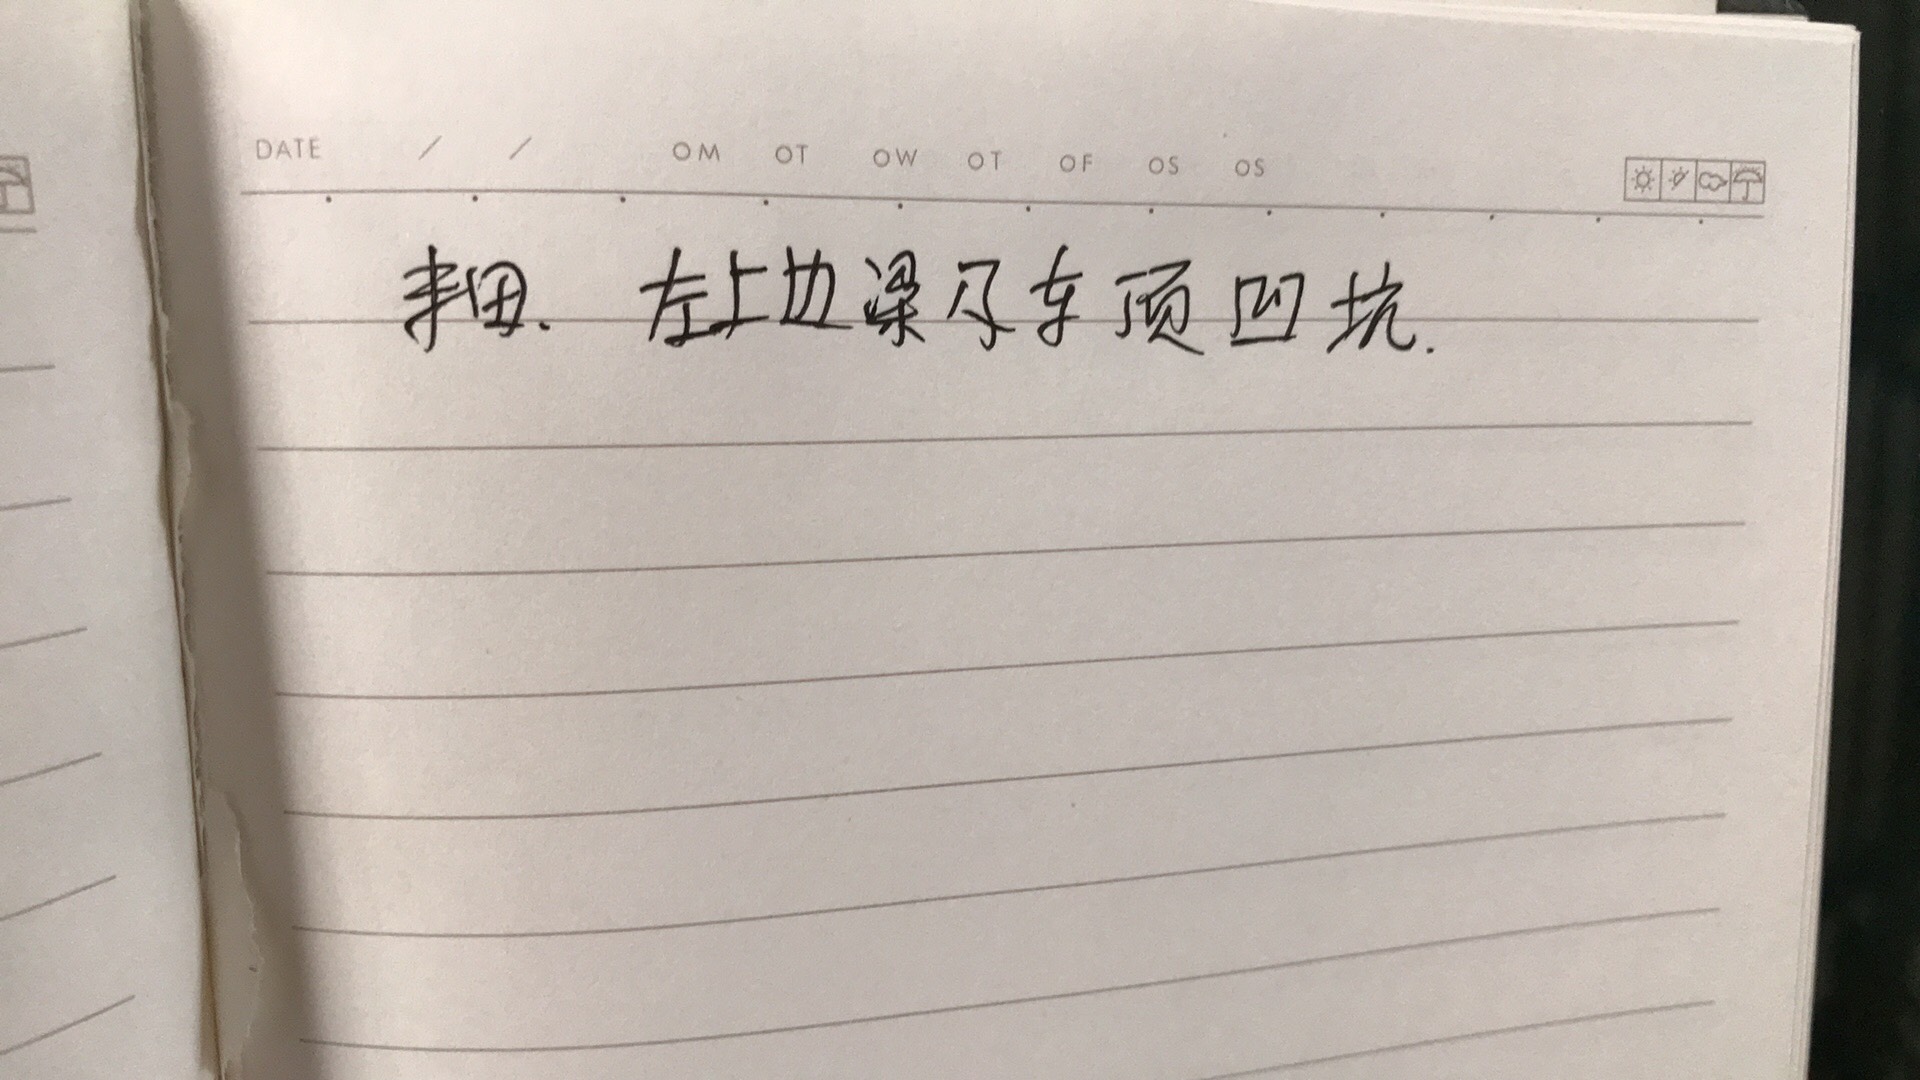 DATE / / OM OT OW OT OF OS OS
丰田. 左上边梁及车顶凹坑.